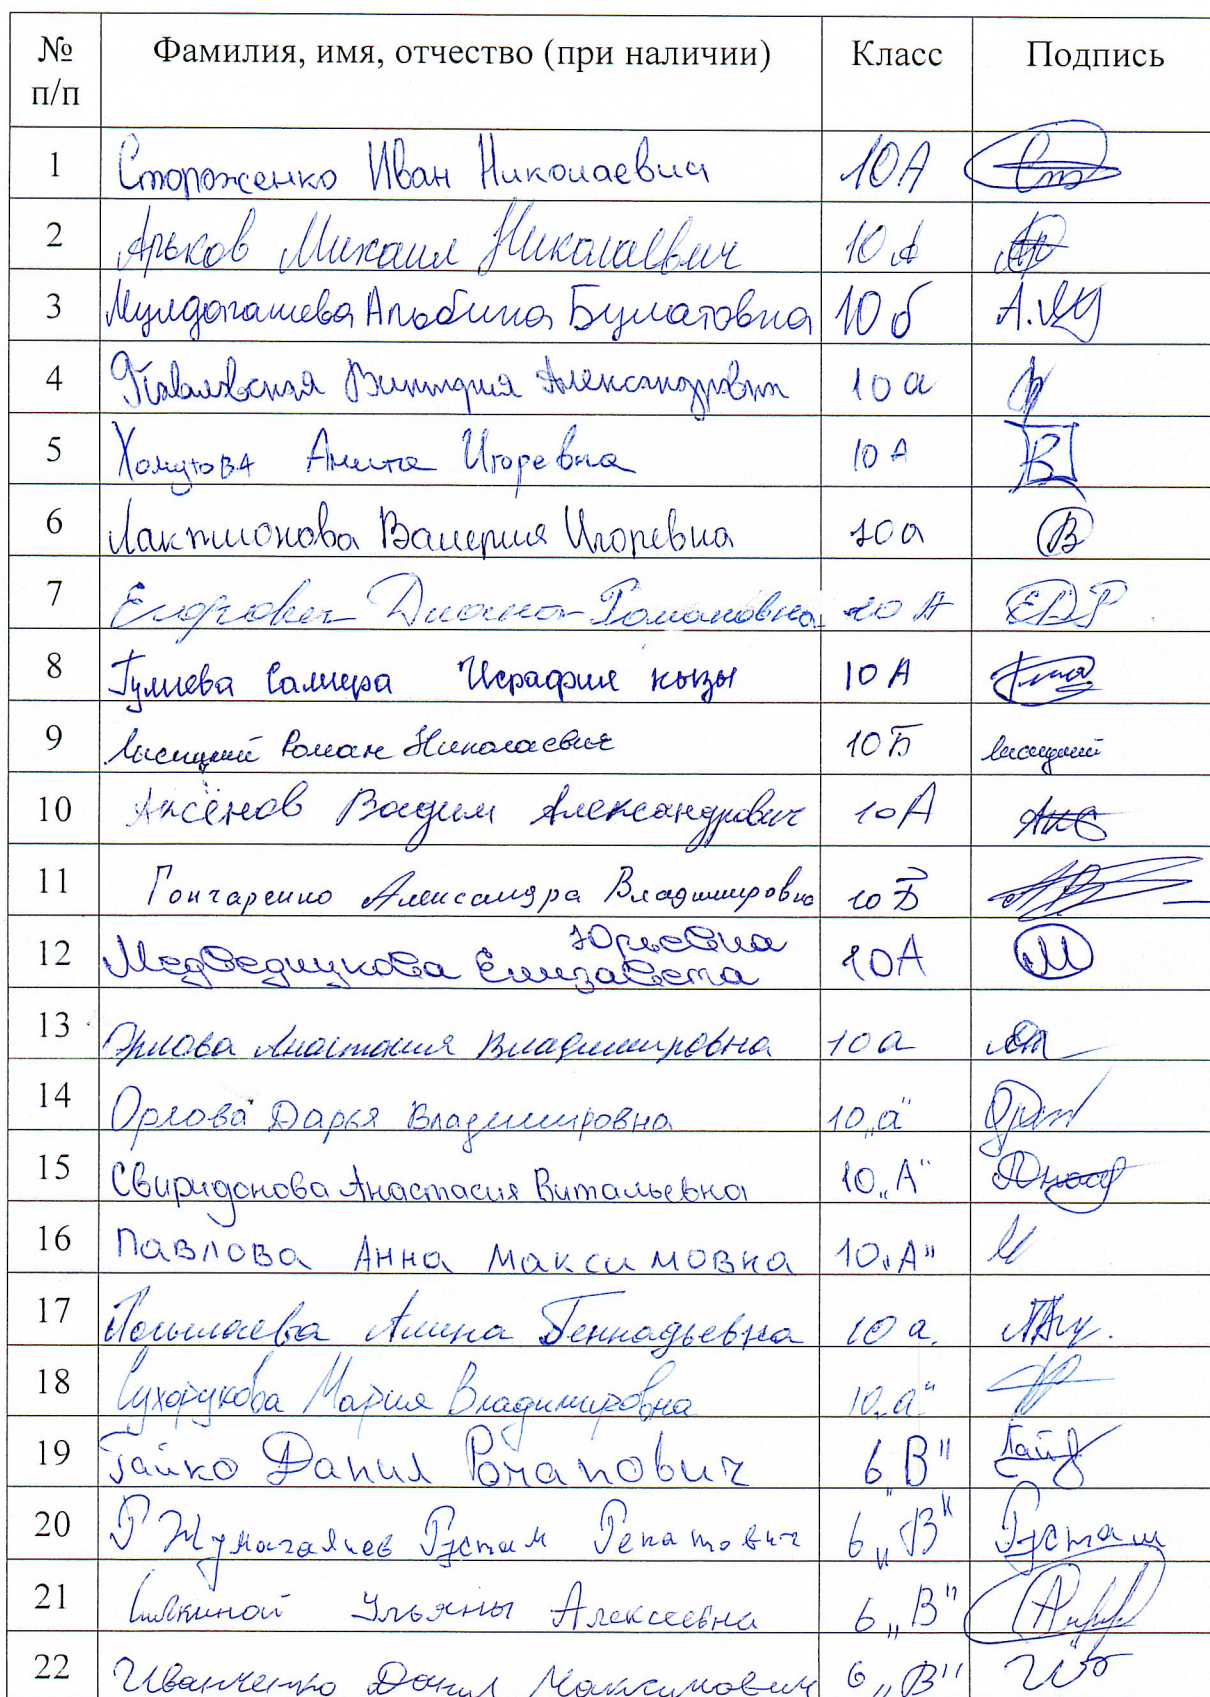 № п/п Фамилия, имя, отчество (при наличии) Класс Подпись
1 Стороженко Иван Николаевич 10А
2 Арьков Михаил Николаевич 10 А
3 Мулдагашева Альбина Булатовна 10 б А.
4 Александровна 10 а
5 Хомутова Анита Игоревна 10 А В
6 Лактионова Валерия Игоревна 10а В
7 Диана Романовна 10 А ЕДР
8 Гулиева Самира Исрафил кызы 10 А
9 Лисицкий Роман Николаевич 10 Б Лисицкий
10 Аксёнов Вадим Александрович 10А Акс
11 Гончаренко Александра Владимировна 10 Б
12 Медведицкова Елизавета Юрьевна 10А М
13 Орлова Анастасия Владимировна 10 а
14 Орлова Дарья Владимировна 10 „а"
15 Свиридонова Анастасия Витальевна 10 „А"
16 Павлова Анна Максимовна 10 „А"
17 Алина Геннадьевна 10 а.
18 Сухорукова Мария Владимировна 10 „а"
19 Гайко Данил Романович 6 „В" Гайко
20 Р Жумагалиев Рустам Ренатович 6 „В" Рустам
21 Ульяны Алексеевна 6 „В"
22 Иванченко Данил Максимович 6 „В"